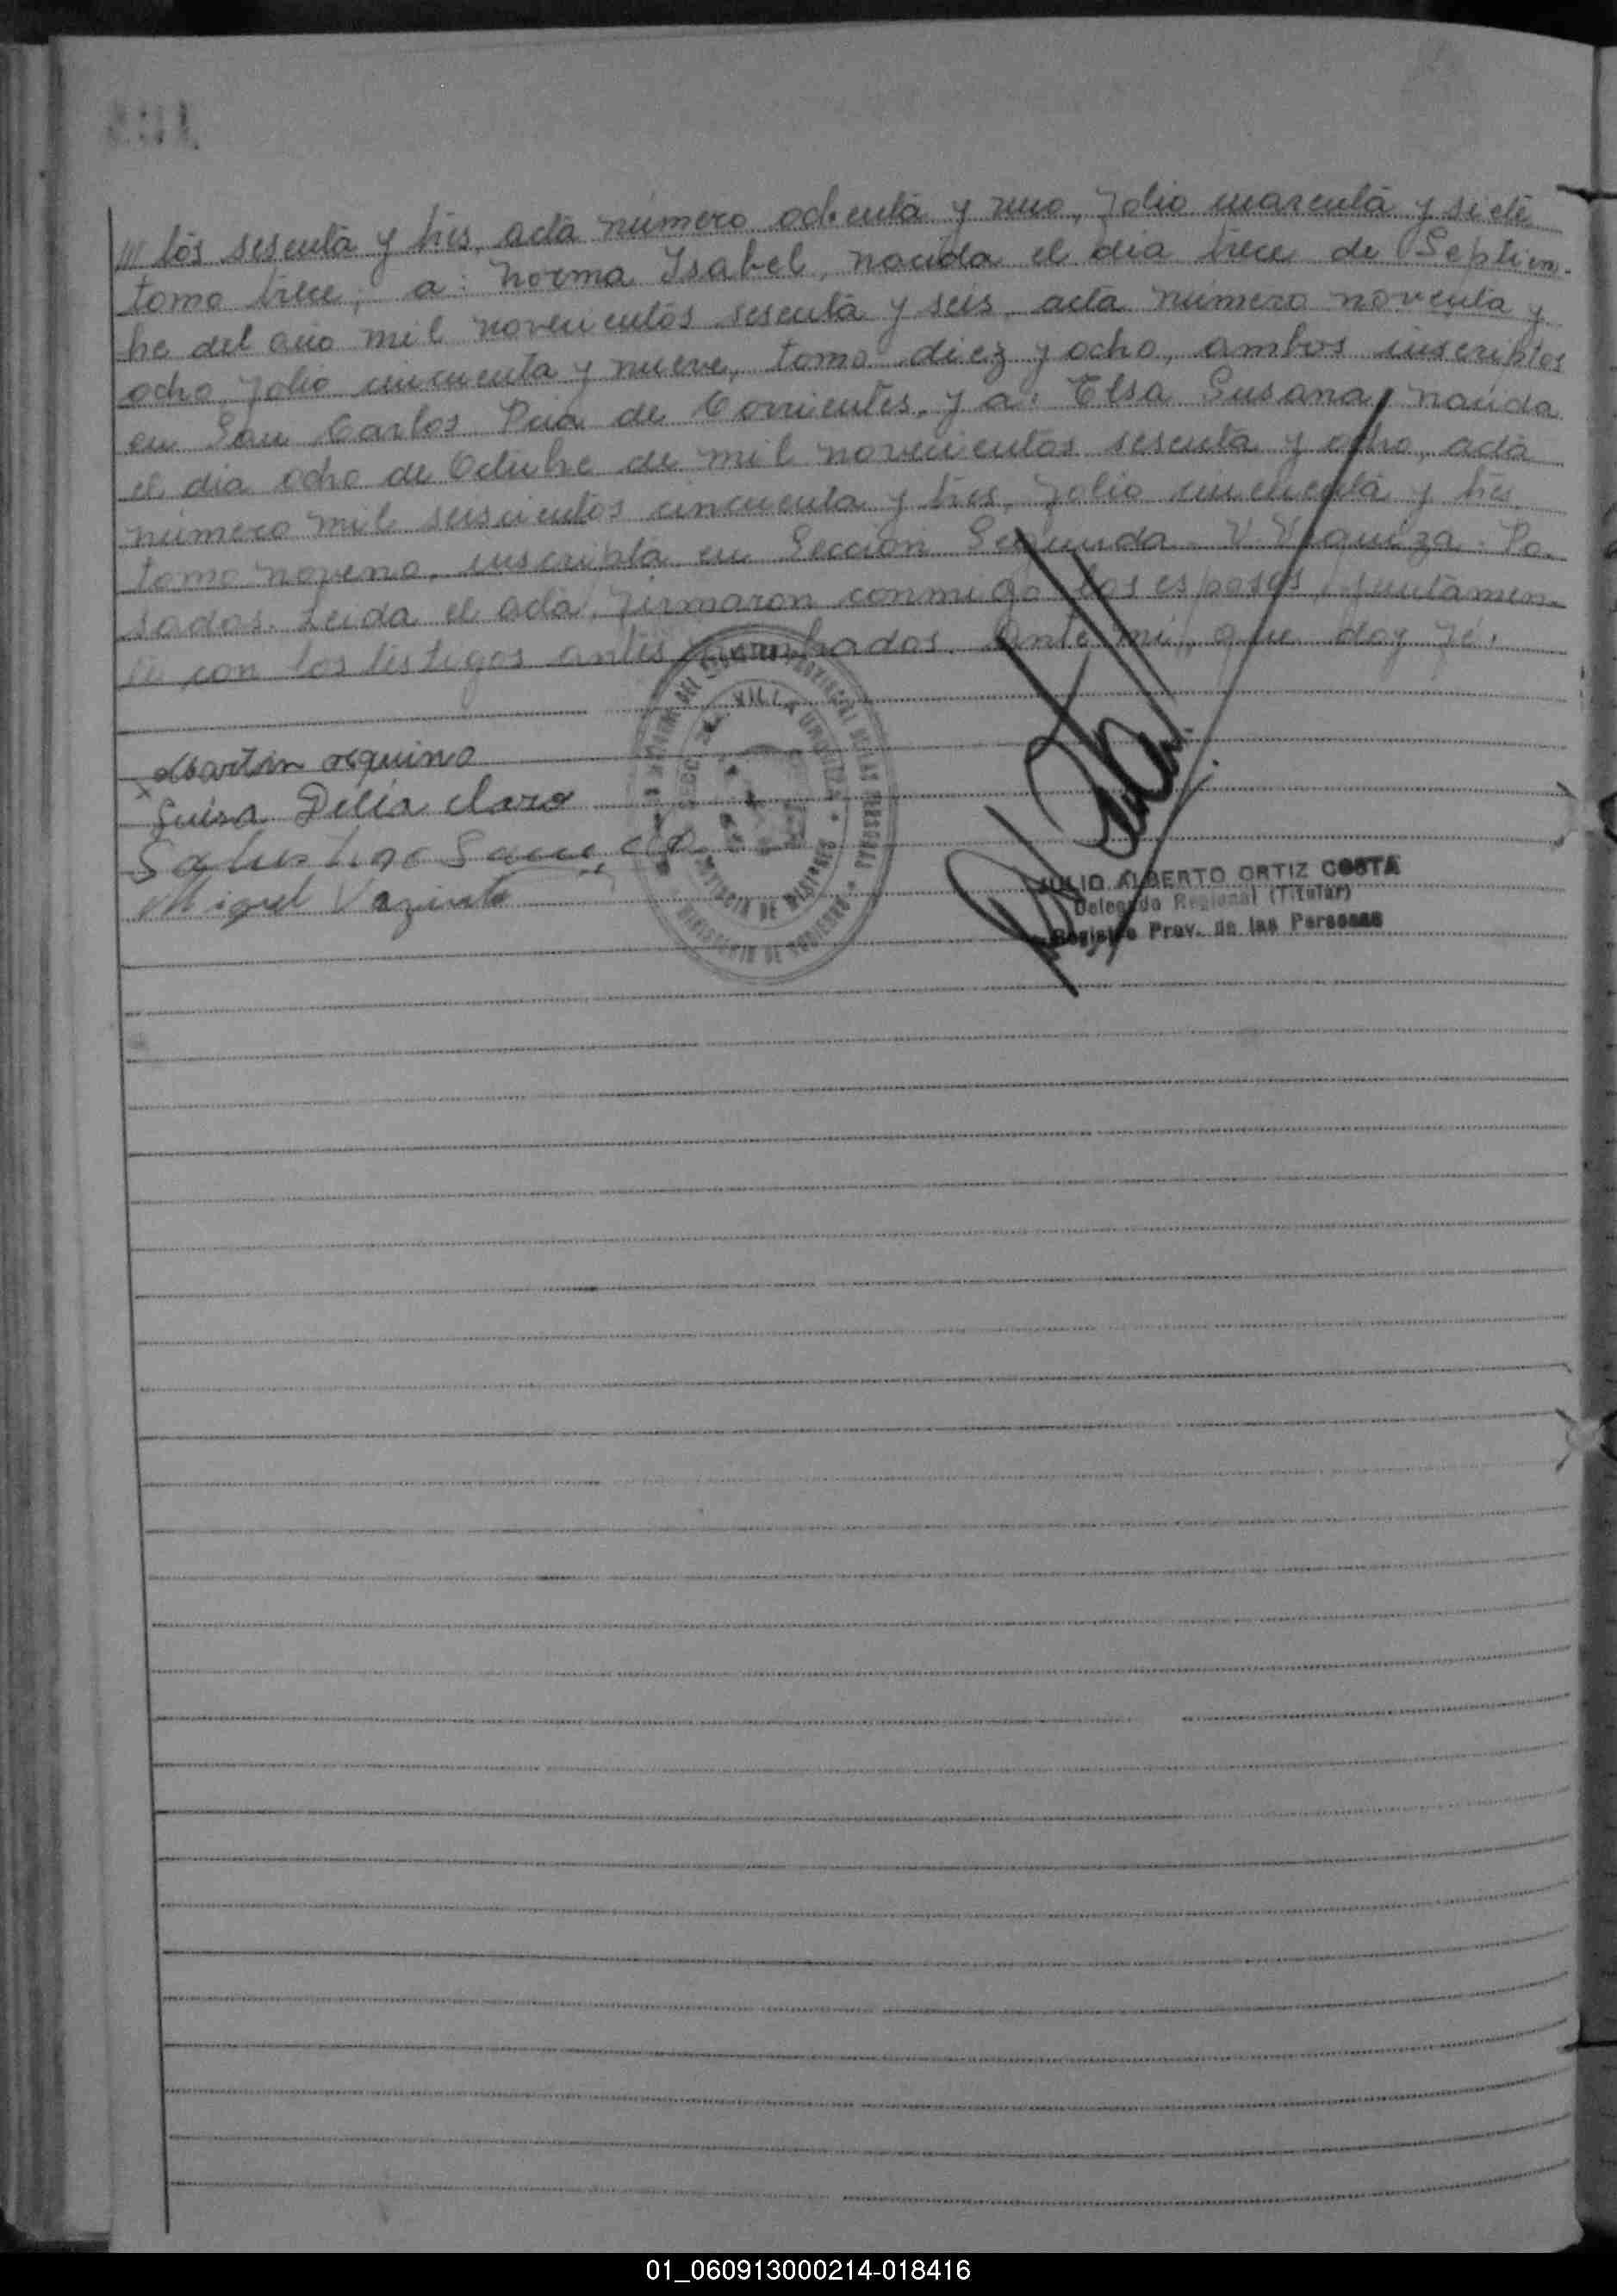 /// tos sesenta y tres, acta número ochenta y uno, folio cuarenta y siete
tomo trece; a: Norma Isabel, nacida el día trece de Septiem-
bre del año mil novecientos sesenta y seis, acta número noventa y
ocho, folio cincuenta y nueve, tomo diez y ocho, ambos inscriptos
en San Carlos Pcia de Corrientes, y a: Elsa Susana, nacida
el día ocho de Octubre de mil novecientos sesenta y ocho, acta
número mil seiscientos cincuenta y tres, folio cincuenta y tres,
tomo noveno, inscripta en Sección Segunda. V. Urquiza. Po-
sadas. Leída el acta, firmaron conmigo los esposos, juntamen-
te con los testigos antes nombrados. Ante mí, que doy fé.
Martin Aquino
Luisa Delia Claro
Miguel
JULIO ALBERTO ORTIZ COSTA
Delegado Regional (Titular)
Registro Prov. de las Personas
VILLA URQUIZA
PROVINCIA DE MISIONES
MINISTERIO DE GOBIERNO
01_060913000214-018416